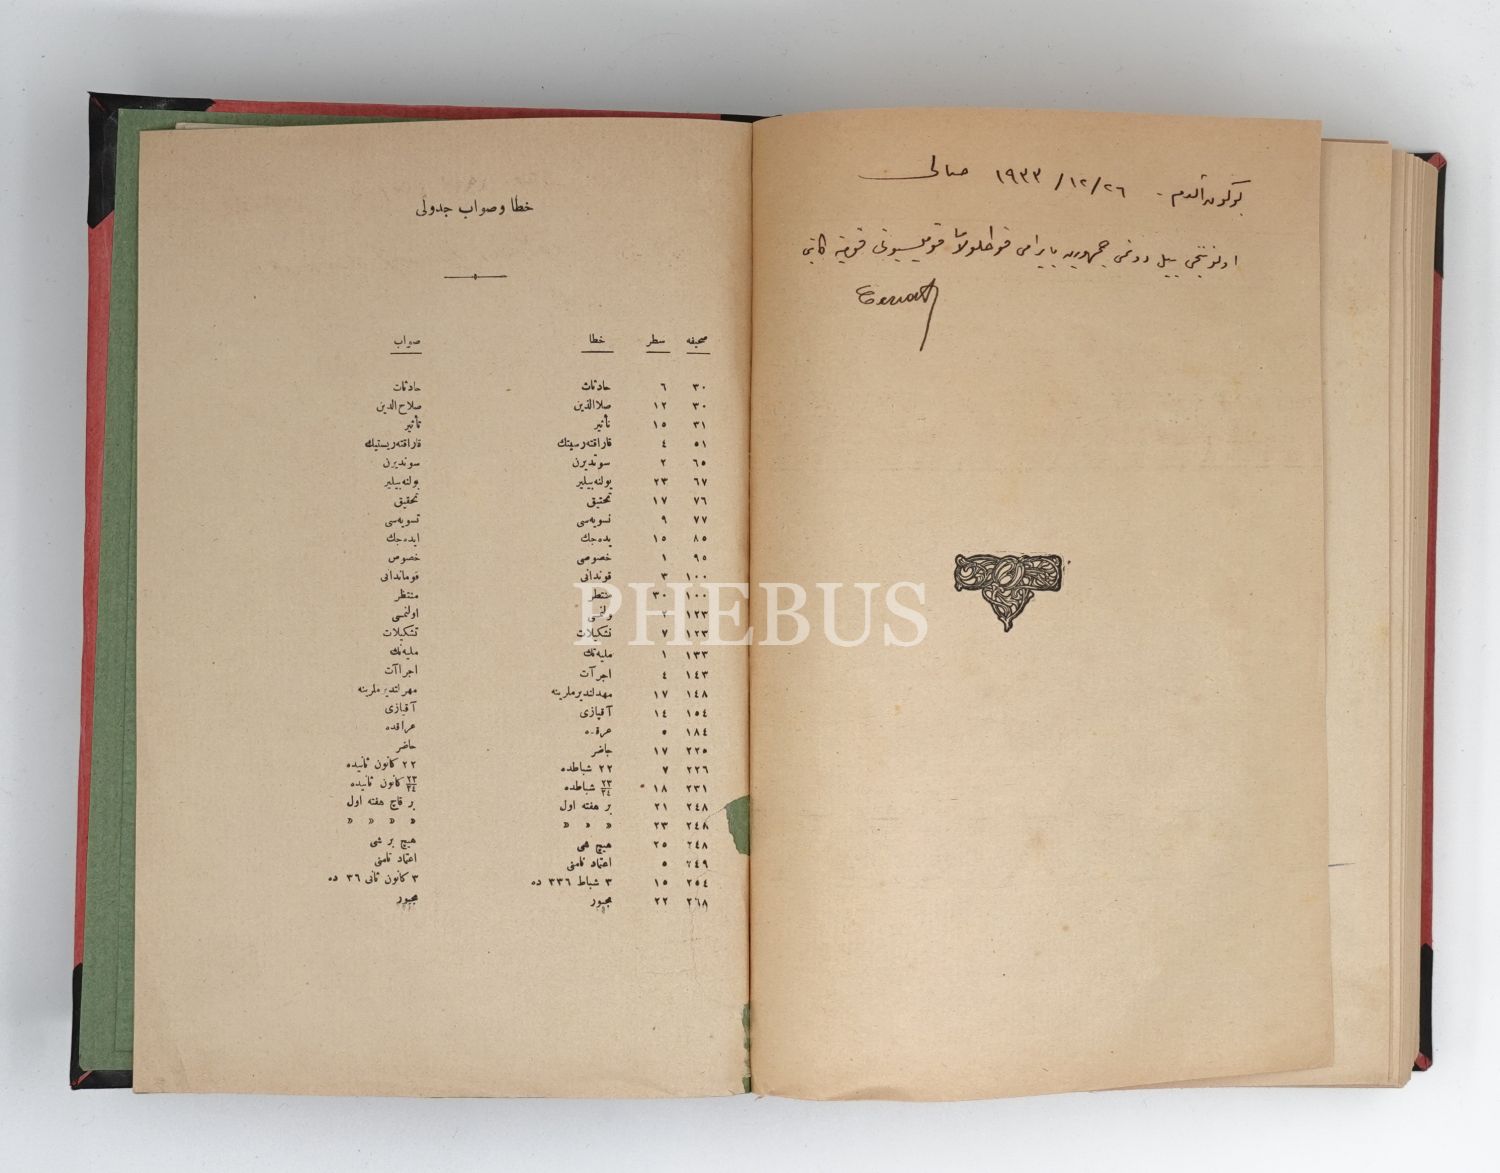 خطا وصواب جدولی
صحیفه سطر خطا صواب
٣٠ ٦ حادثات حادثات
٣٠ ١٢ صلاالذین صلاح‌الدین
٣١ ١٥ نأثیر تأثیر
٥١ ٤ قاراقته‌رسیتك قاراقته‌ریستیك
٦٥ ٢ سوندیرن سوندیرن
٦٧ ٢٣ یولنه‌بیلیر بولنه‌بیلیر
٧٦ ١٧ تحتیق تحقیق
٧٧ ٩ نسویه‌سی تسویه‌سی
٨٥ ١٥ یده‌جك ایده‌جك
٩٥ ١ خصوصی خصوص
١٠٠ ٣ قوندانی قوماندانی
١٠٠ ٣٠ منتطر منتظر
١٢٣ ٢ ولنمسی اولنمسی
١٢٣ ٧ نشکیلات تشکیلات
١٣٣ ١ ملیه‌تك ملیه‌نك
١٤٣ ٤ اجرآت اجراآت
١٤٨ ١٧ مهدلندیرملرینه مهرلندیرملرینه
١٥٤ ١٤ آقیازی آقیازی
١٨٤ ٥ عراقده
٢٢٥ ١٧ جاضر حاضر
٢٢٦ ٧ ٢٢ شباطده ٢٢ کانون ثانیده
٢٣١ ١٨ ٢٣/٢٤ شباطده ٢٣/٢٤ کانون ثانیده
٢٤٨ ٢١ بر هفته اول بر قاچ هفته اول
٢٤٨ ٢٣ » » » » » » »
٢٤٨ ٢٥ هیچ هی هیچ بر شی
٢٤٩ ٥ اعتماد نامنی اعتماد نامنی
٢٥٤ ١٥ ٣ شباط ٣٣٦ ده ٣ کانون ثانی ٣٦ ده
٢٦٨ ٢٢ مجبور مجبور
بوکون آلدم - ٢٦/١٢/١٩٣٣ صالی
اوننجی ییل دونمی جمهوریت بایرامی قوطلولاما قومیسیونی کاتبی
PHEBUS